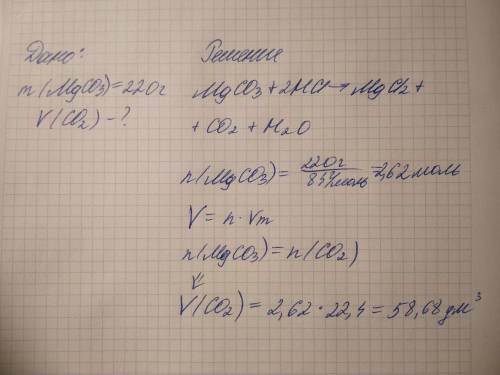 Дано:
m(MgCO3)=220г
V(CO2)-?
Решение
MgCO3+2HCl→MgCl2+
+CO2+H2O
n(MgCO3)=220г/84г/моль=2,62моль
V=n·Vm
n(MgCO3)=n(CO2)
⇓
V(CO2)=2,62·22,4=58,68дм³